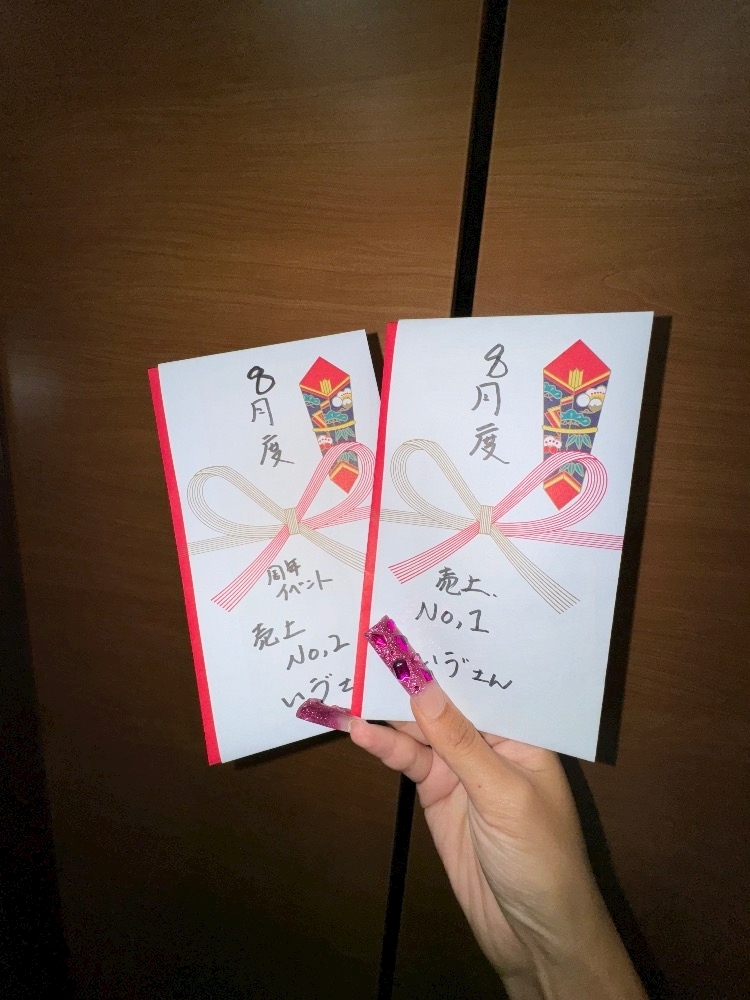 8月度
周年
イベント
売上
No,2
いづさ
8月度
売上.
No,1
いづさん